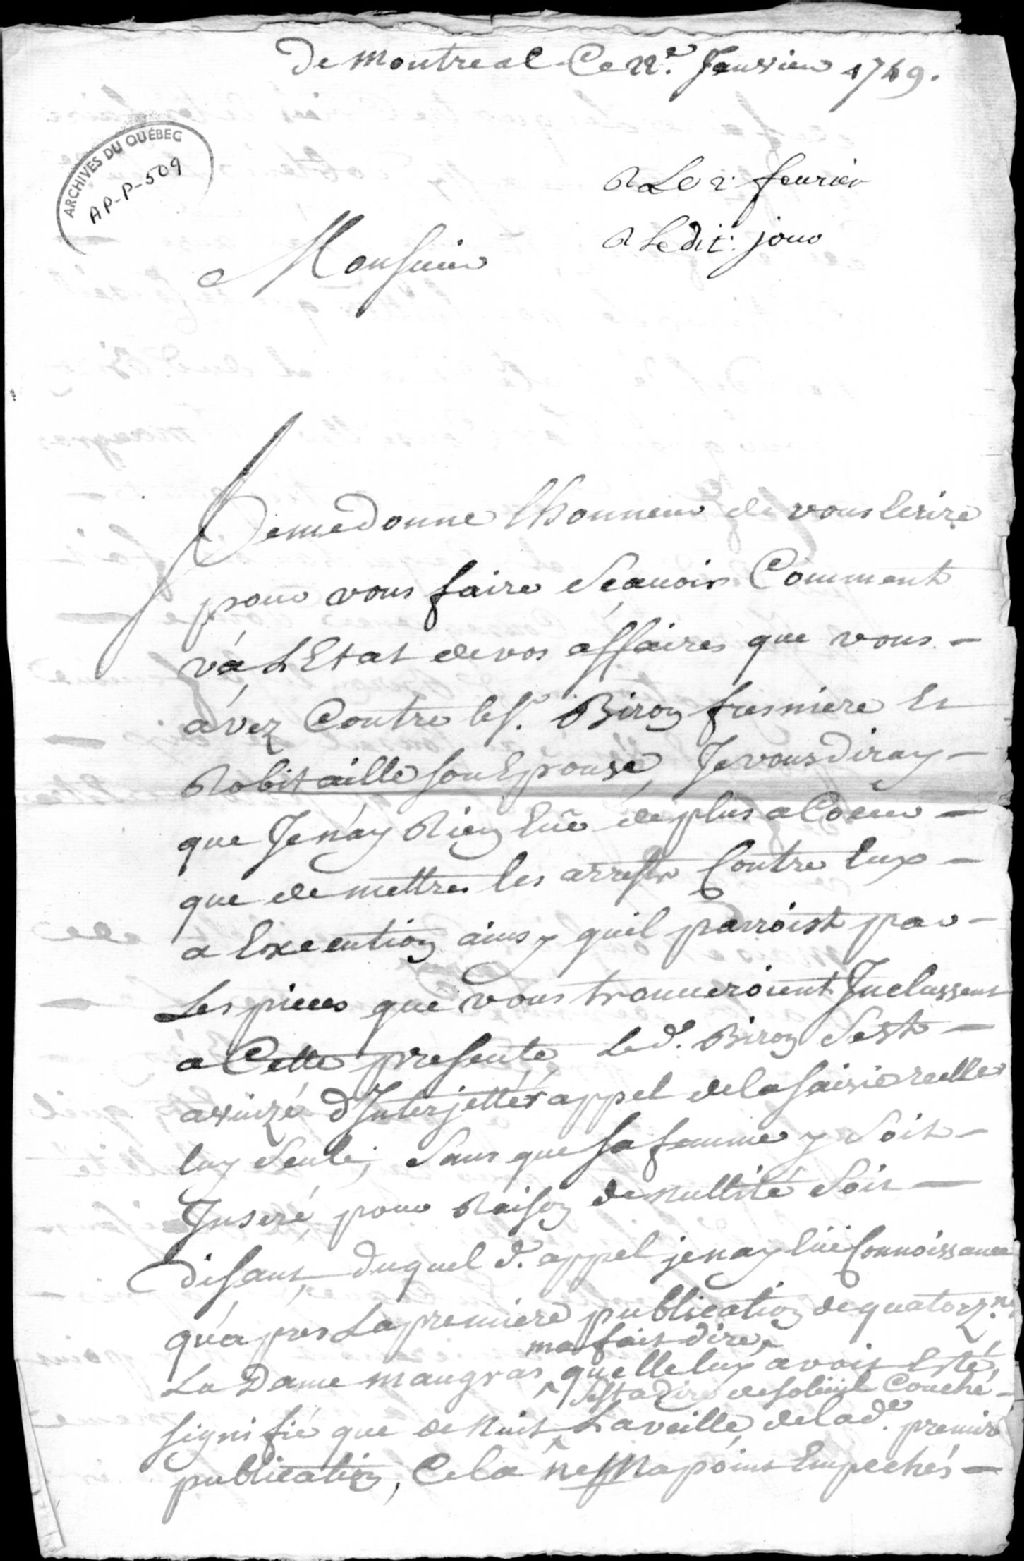 De Montreal Ce 22.e Janvier 1749.
ARCHIVES DU QUÉBEC
AP-P-509
R Le 2. feurier
R Ledit. jour
Monsieur
Jemedonne lhonneur de vous Ecrire
pour vous faire Scauoir Comment
vá LEtat devos áffaires que vous –
ávez Contre les.r Biron fresniere Et
Robitaille son Epouse, Je vous diray –
que Je náy Rien Eûe de plus a Coeur –
que de mettres les arrests Contre Eux –
a Execution ainsy quil parroist par –
Les pieces que vous trouueroient Inclussent
a Cette presente, Led.t Biron Sest –
avuizé dInterjettér appel de la saisie reelle
luy Seule, Sans que sa femme y Soit –
Inseré, pour Raison de nullité Soit –
disant, duquel d.t appel je nay Eüe Connoissance
quápres La premiere publication de quatorz.ne
La Dame maugras ma fait dire, quelle luy avoit Esté,
Sesta dire de soleüil Couché –
signifié que de Nuit, La veille de lad.e premiere
publication, Cela ne Ma point Empechés –